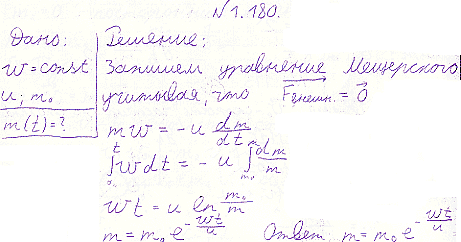 N 1.180.
Дано:
w = const
u; m₀
m(t) = ?
Решение:
Запишем уравнение Мещерского
учитывая, что F⃗внешн. = 0⃗
m w = - u dm/dt
∫₀ᵗ w dt = - u ∫ₘ₀ᵐ dm/m
w t = u ln m₀/m
m = m₀ e^(-wt/u) Ответ: m = m₀ e^(-wt/u)